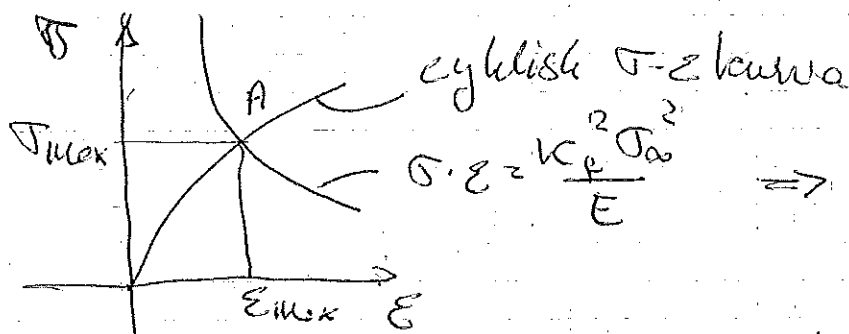 σ
A
cyklisk σ-ε kurva
σmax
σ·ε = K_f² σ∞² / E ⇒
εmax ε